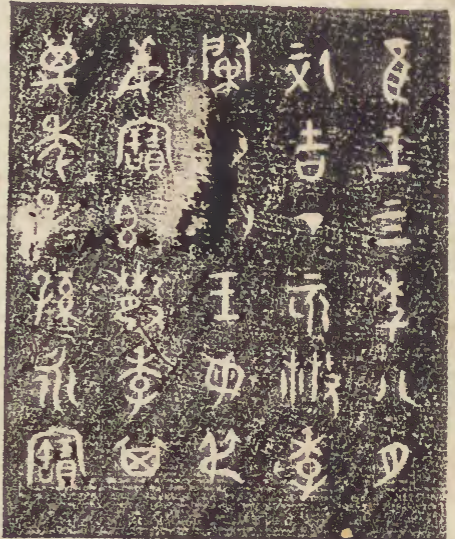 隹王亖年八月
初吉丁亥散季
肇王母叔
姜寶散季其
萬年子孫永寶